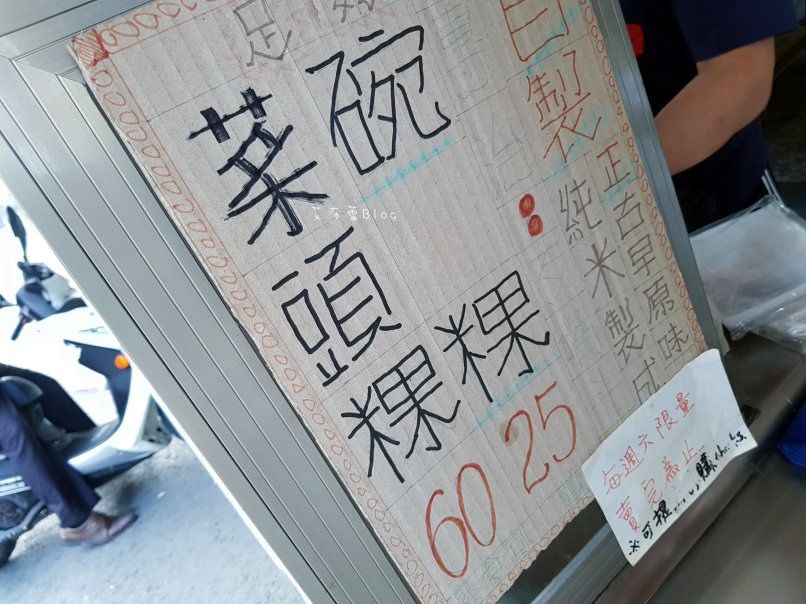 自製：
正古早原味
純米製成
碗粿 25
菜頭粿 60
每週六限量
賣完為止
艾布蕾Blog